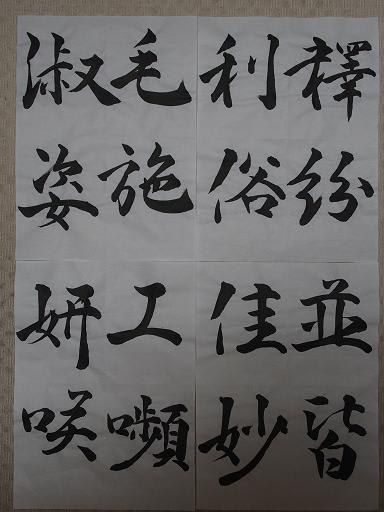 釋紛並皆
利俗佳妙
毛施工嚬
淑姿妍咲